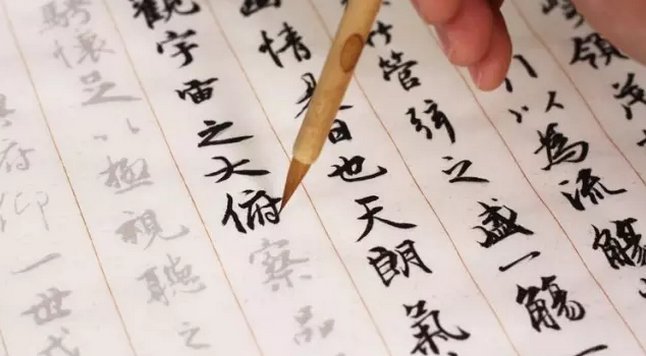 領茂
以為流觴
管弦之盛一觴
情是日也天朗氣
觀宇宙之大俯察品
騁懷足以極視聽之
俯仰一世